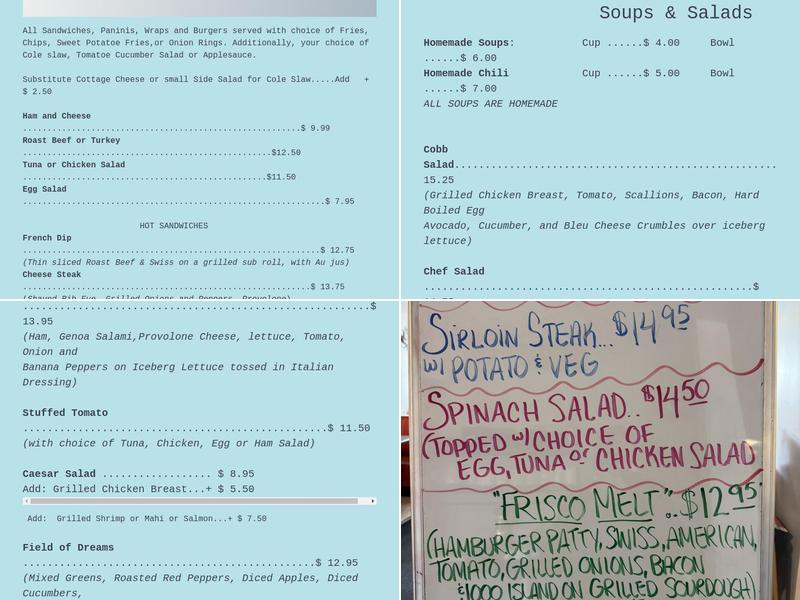 All Sandwiches, Paninis, Wraps and Burgers served with choice of Fries,
Chips, Sweet Potatoe Fries,or Onion Rings. Additionally, your choice of
Cole slaw, Tomatoe Cucumber Salad or Applesauce.
Substitute Cottage Cheese or small Side Salad for Cole Slaw.....Add +
$ 2.50
Ham and Cheese
..........................................................$ 9.99
Roast Beef or Turkey
....................................................$12.50
Tuna or Chicken Salad
...................................................$11.50
Egg Salad
...............................................................$ 7.95
HOT SANDWICHES
French Dip
..............................................................$ 12.75
(Thin sliced Roast Beef & Swiss on a grilled sub roll, with Au jus)
Cheese Steak
............................................................$ 13.75
(Shaved Rib Eye, Grilled Onions and Peppers, Provolone)
Soups & Salads
Homemade Soups: Cup ......$ 4.00 Bowl
......$ 6.00
Homemade Chili Cup ......$ 5.00 Bowl
......$ 7.00
ALL SOUPS ARE HOMEMADE
Cobb
Salad................................................
15.25
(Grilled Chicken Breast, Tomato, Scallions, Bacon, Hard
Boiled Egg
Avocado, Cucumber, and Bleu Cheese Crumbles over iceberg
lettuce)
Chef Salad
.................................................$
.....................................................$
13.95
(Ham, Genoa Salami,Provolone Cheese, lettuce, Tomato,
Onion and
Banana Peppers on Iceberg Lettuce tossed in Italian
Dressing)
Stuffed Tomato
..............................................$ 11.50
(with choice of Tuna, Chicken, Egg or Ham Salad)
Caesar Salad ................. $ 8.95
Add: Grilled Chicken Breast...+ $ 5.50
Add: Grilled Shrimp or Mahi or Salmon...+ $ 7.50
Field of Dreams
............................................$ 12.95
(Mixed Greens, Roasted Red Peppers, Diced Apples, Diced
Cucumbers,
SIRLOIN STEAK...$14.95
W/ POTATO & VEG
SPINACH SALAD..$14.50
(TOPPED W/ CHOICE OF
EGG, TUNA or CHICKEN SALAD
"FRISCO MELT"..$12.95
(HAMBURGER PATTY, SWISS, AMERICAN,
TOMATO, GRILLED ONIONS, BACON
& 1000 ISLAND ON GRILLED SOURDOUGH)